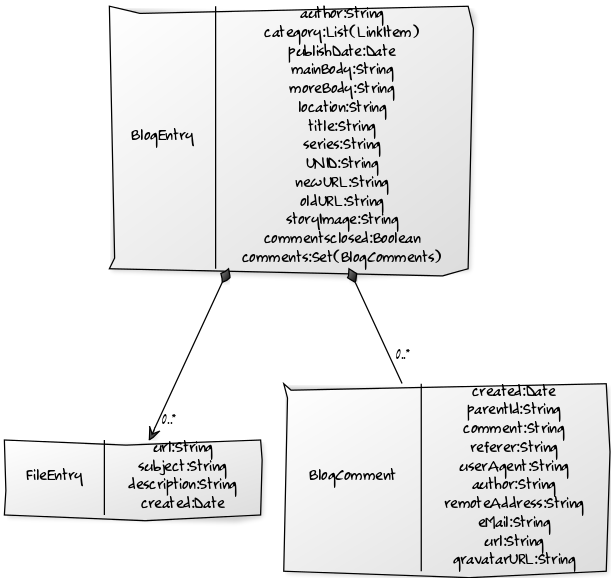 author:String
category:List(LinkItem)
publishDate:Date
mainBody:String
moreBody:String
location:String
title:String
BlogEntry
series:String
UNID:String
newURL:String
oldURL:String
storyImage:String
commentsclosed:Boolean
comments:Set(BlogComments)
0..*
0..*
url:String
subject:String
FileEntry
description:String
created:Date
created:Date
parentId:String
comment:String
referer:String
userAgent:String
BlogComment
author:String
remoteAddress:String
eMail:String
url:String
gravatarURL:String